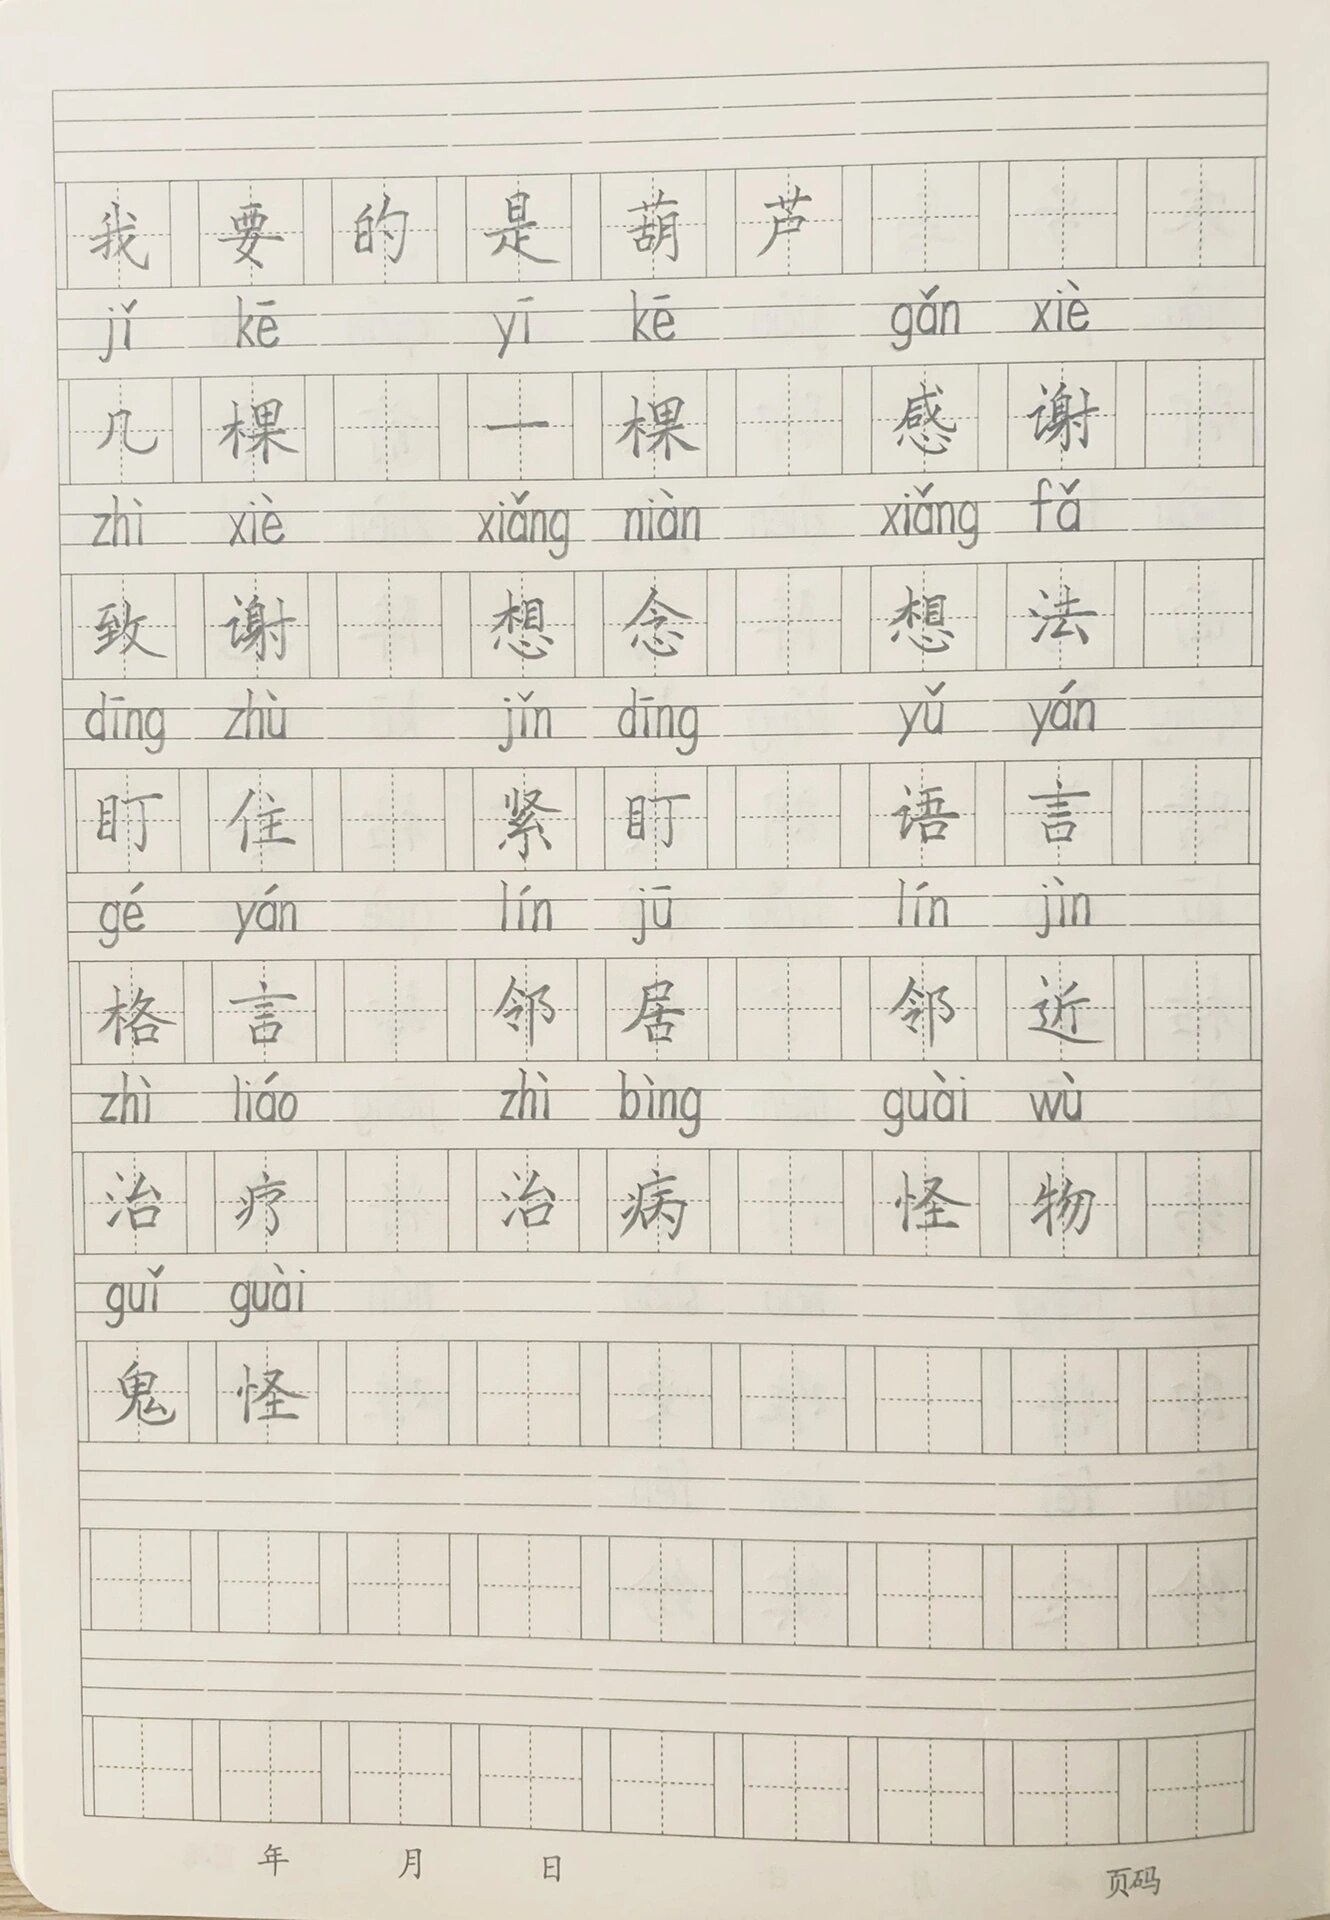 我要的是葫芦
jǐ kē yī kē gǎn xiè
几棵 一棵 感谢
zhì xiè xiǎng niàn xiǎng fǎ
致谢 想念 想法
dīng zhù jǐn dīng yǔ yán
盯住 紧盯 语言
gé yán lín jū lín jìn
格言 邻居 邻近
zhì liáo zhì bìng guài wù
治疗 治病 怪物
guǐ guài
鬼怪
年 月 日 页码